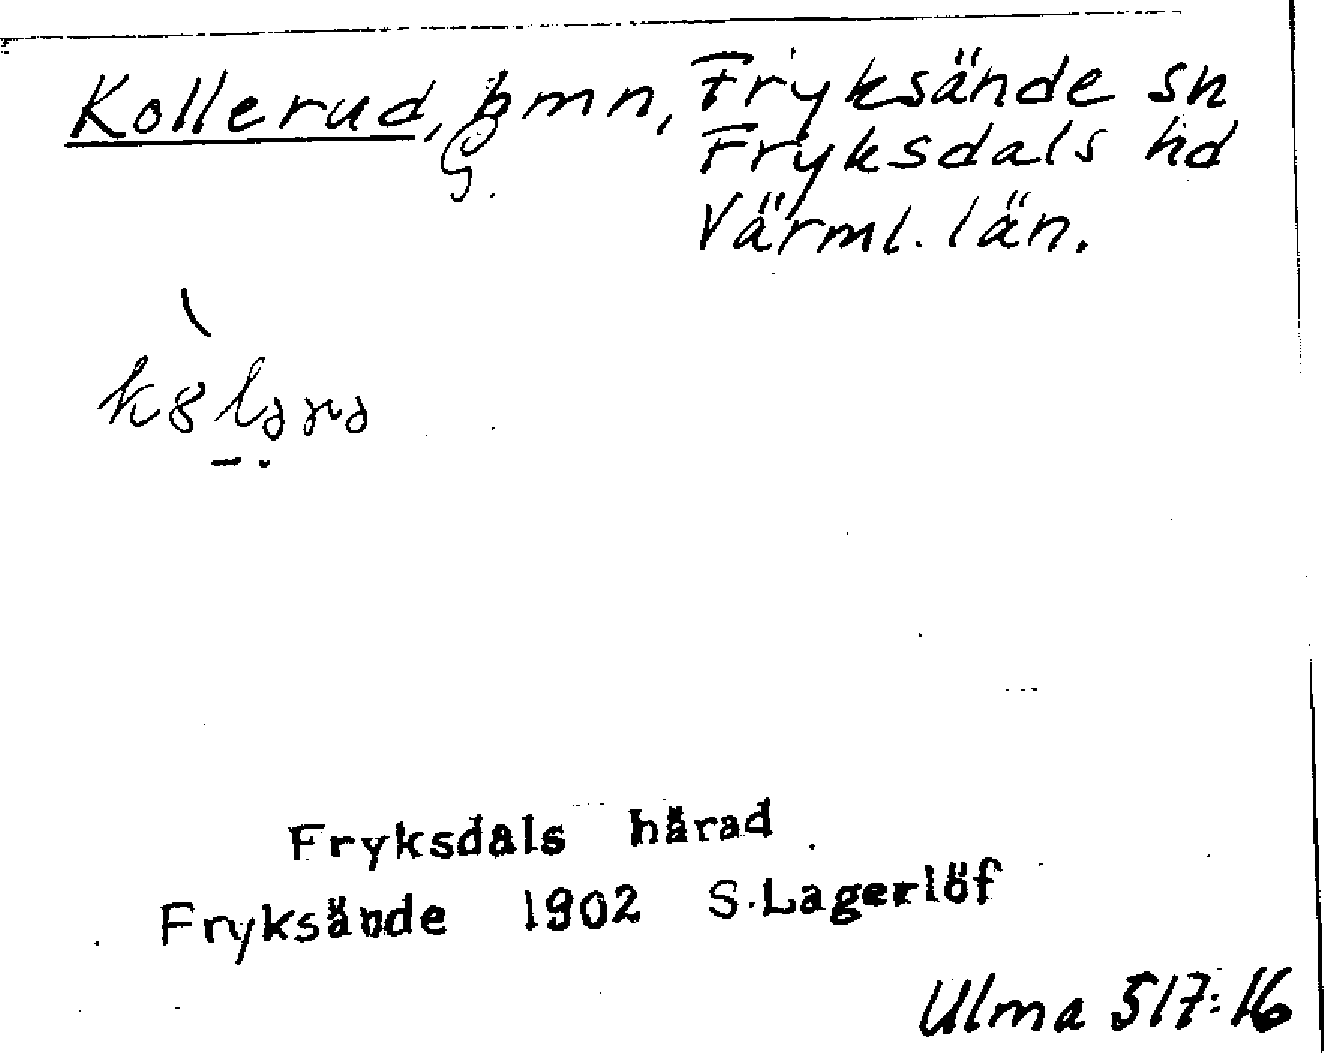 Kollerud, hmn, Fryksände sn
G. Fryksdals hd
Värml. län.
Fryksdals härad
Fryksände 1902 S. Lagerlöf
Ulma 517:16